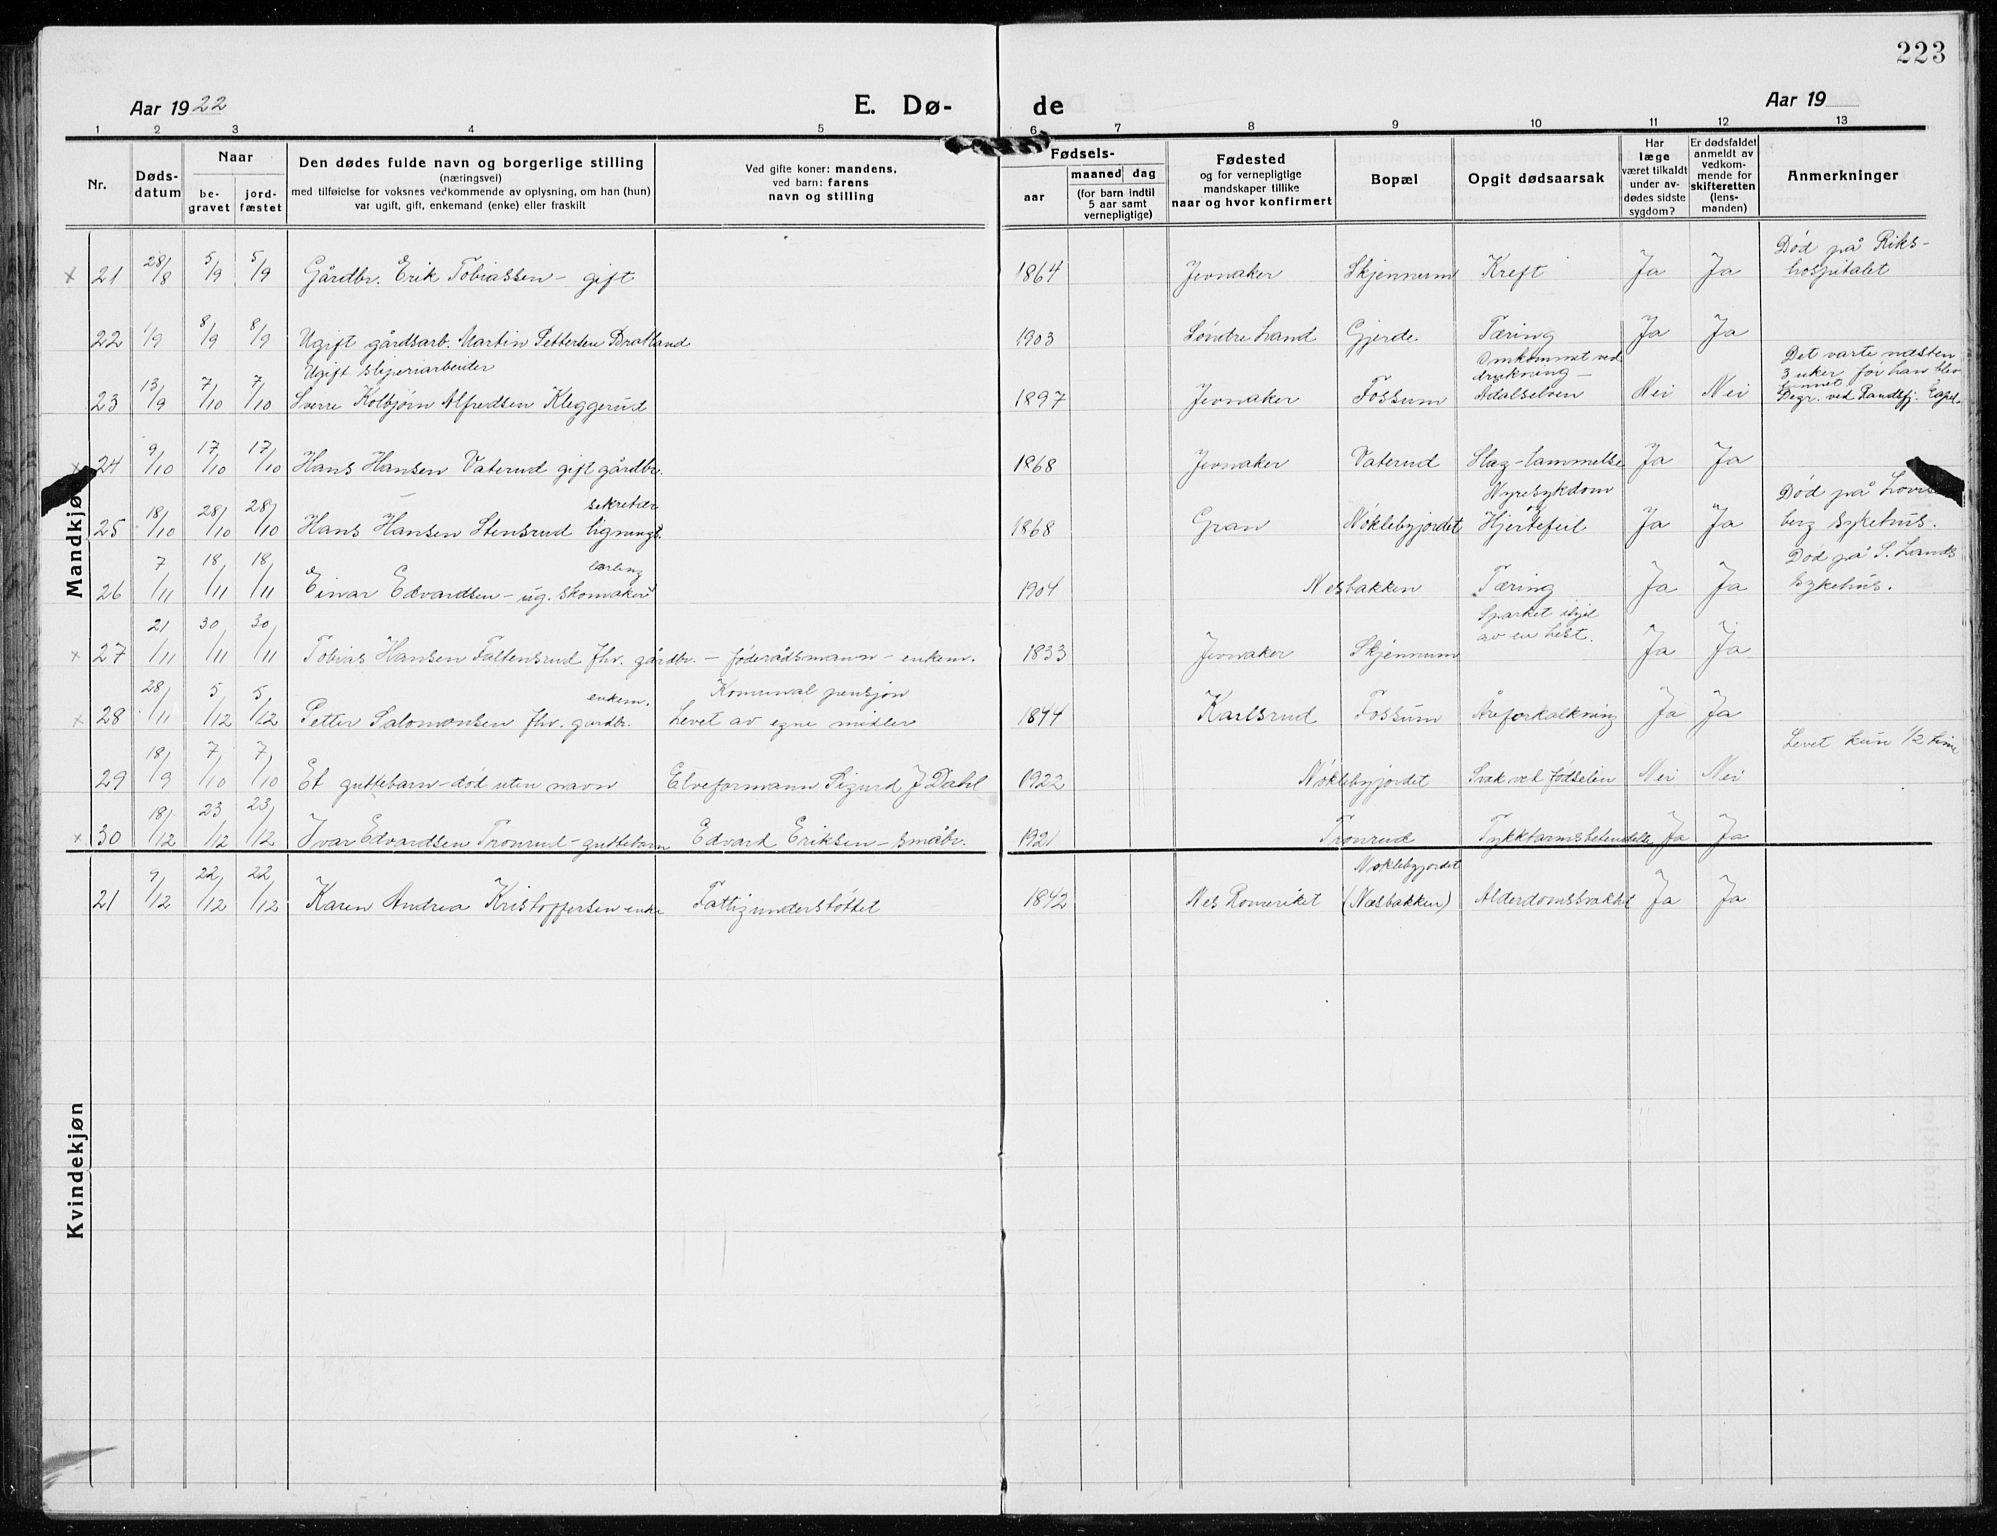 223
Aar 1922 E. Dø- de Aar 19
1 2 3 4 5 6 7 8 9 10 11 12 13
Nr. Døds-datum Naar be-gravet jord-fæstet Den dødes fulde navn og borgerlige stilling (næringsvei) med tilføielse for voksnes vedkommende av oplysning, om han (hun) var ugift, gift, enkemand (enke) eller fraskilt Ved gifte koner: mandens, ved barn: farens navn og stilling Fødsels- aar maaned dag (for barn indtil 5 aar samt vernepligtige) Fødested og for vernepligtige mandskaper tillike naar og hvor konfirmert Bopæl Opgit dødsaarsak Har læge været tilkaldt under av-dødes sidste sygdom? Er dødsfaldet anmeldt av vedkom-mende for skifteretten (lens-manden) Anmerkninger
Mandkjøn
x 21 28/8 5/9 5/9 Gårdbr. Erik Tobiassen - gift 1864 Jevnaker Skjennum Kreft Ja Ja Død på Riks-hospitalet
22 1/9 8/9 8/9 Ugift gårdsarb. Martin Pettersen Bratland 1903 Søndre Land Gjerde. Tæring Ja Ja
23 13/9 7/10 7/10 Ugift sliperiarbeider Sverre Kolbjørn Alfredsen Kleggerud 1897 Jevnaker Fossum Omkommet ved drukning - Ådalselven Nei Nei Det varte næsten 3 uker før han blev funnet Begr. ved Randsfj.
x 24 9/10 17/10 17/10 Hans Hansen Vaterud gift gårdbr. 1868 Jevnaker Vaterud Slag-lammelse Ja Ja
25 18/10 28/10 28/10 Hans Hansen Stensrud lignings. sekretær 1868 Gran Nøklebyjordet Nyresykdom og Hjertefeil Ja Ja Død på Lovisenberg sykehus.
26 7/11 18/11 18/11 Einar Edvardsen - ug. skomaker lærling 1904 Nesbakken Tæring Ja Ja Død på S. Lands sykehus.
x 27 21/11 30/11 30/11 Tobias Hansen Faltensrud fhv. gårdbr. - føderådsmann - enkem. 1833 Jevnaker Skjennum Sparket ihjel av en hest. Ja Ja
x 28 28/11 5/12 5/12 Petter Salomonsen fhv. gardbr. enkem. Komunal pensjon Levet av egne midler 1844 Karlsrud Fossum Åreforkalkning Ja Ja
29 18/9 7/10 7/10 Et guttebarn - død uten navn Elveformann Sigurd J Dahl 1922 Nøklebyjordet Svak ved fødselen Nei Nei Levet kun 1/2 time
x 30 18/12 23/12 23/12 Ivar Edvardsen Tronrud - guttebarn Edvard Eriksen - småbr. 1921 Tronrud Tykktarmsbetendelse Ja Ja
Kvindekjøn
21 9/12 22/12 22/12 Karen Andrea Kristoffersen enke Fattigunderstøttet 1842 Nes Romeriket Nøklebyjordet (Næsbakken) Alderdomssvakhet Ja Ja